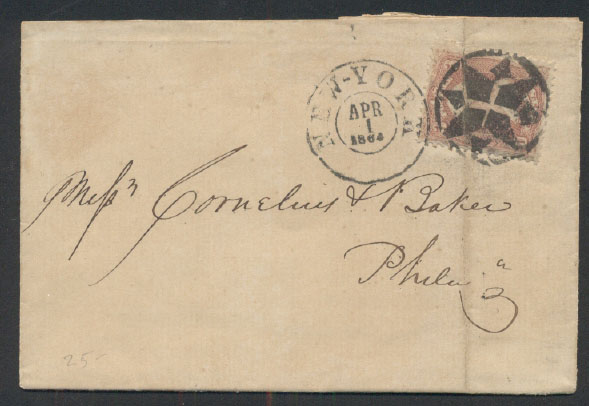 NEW-YORK
APR
1
1864
Mess^rs Cornelius & Baker
Phila^a
25-